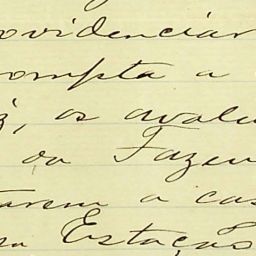 ovidenciar
ompta a
z, os avalu
da Fazen
tarem a cas
na Estação